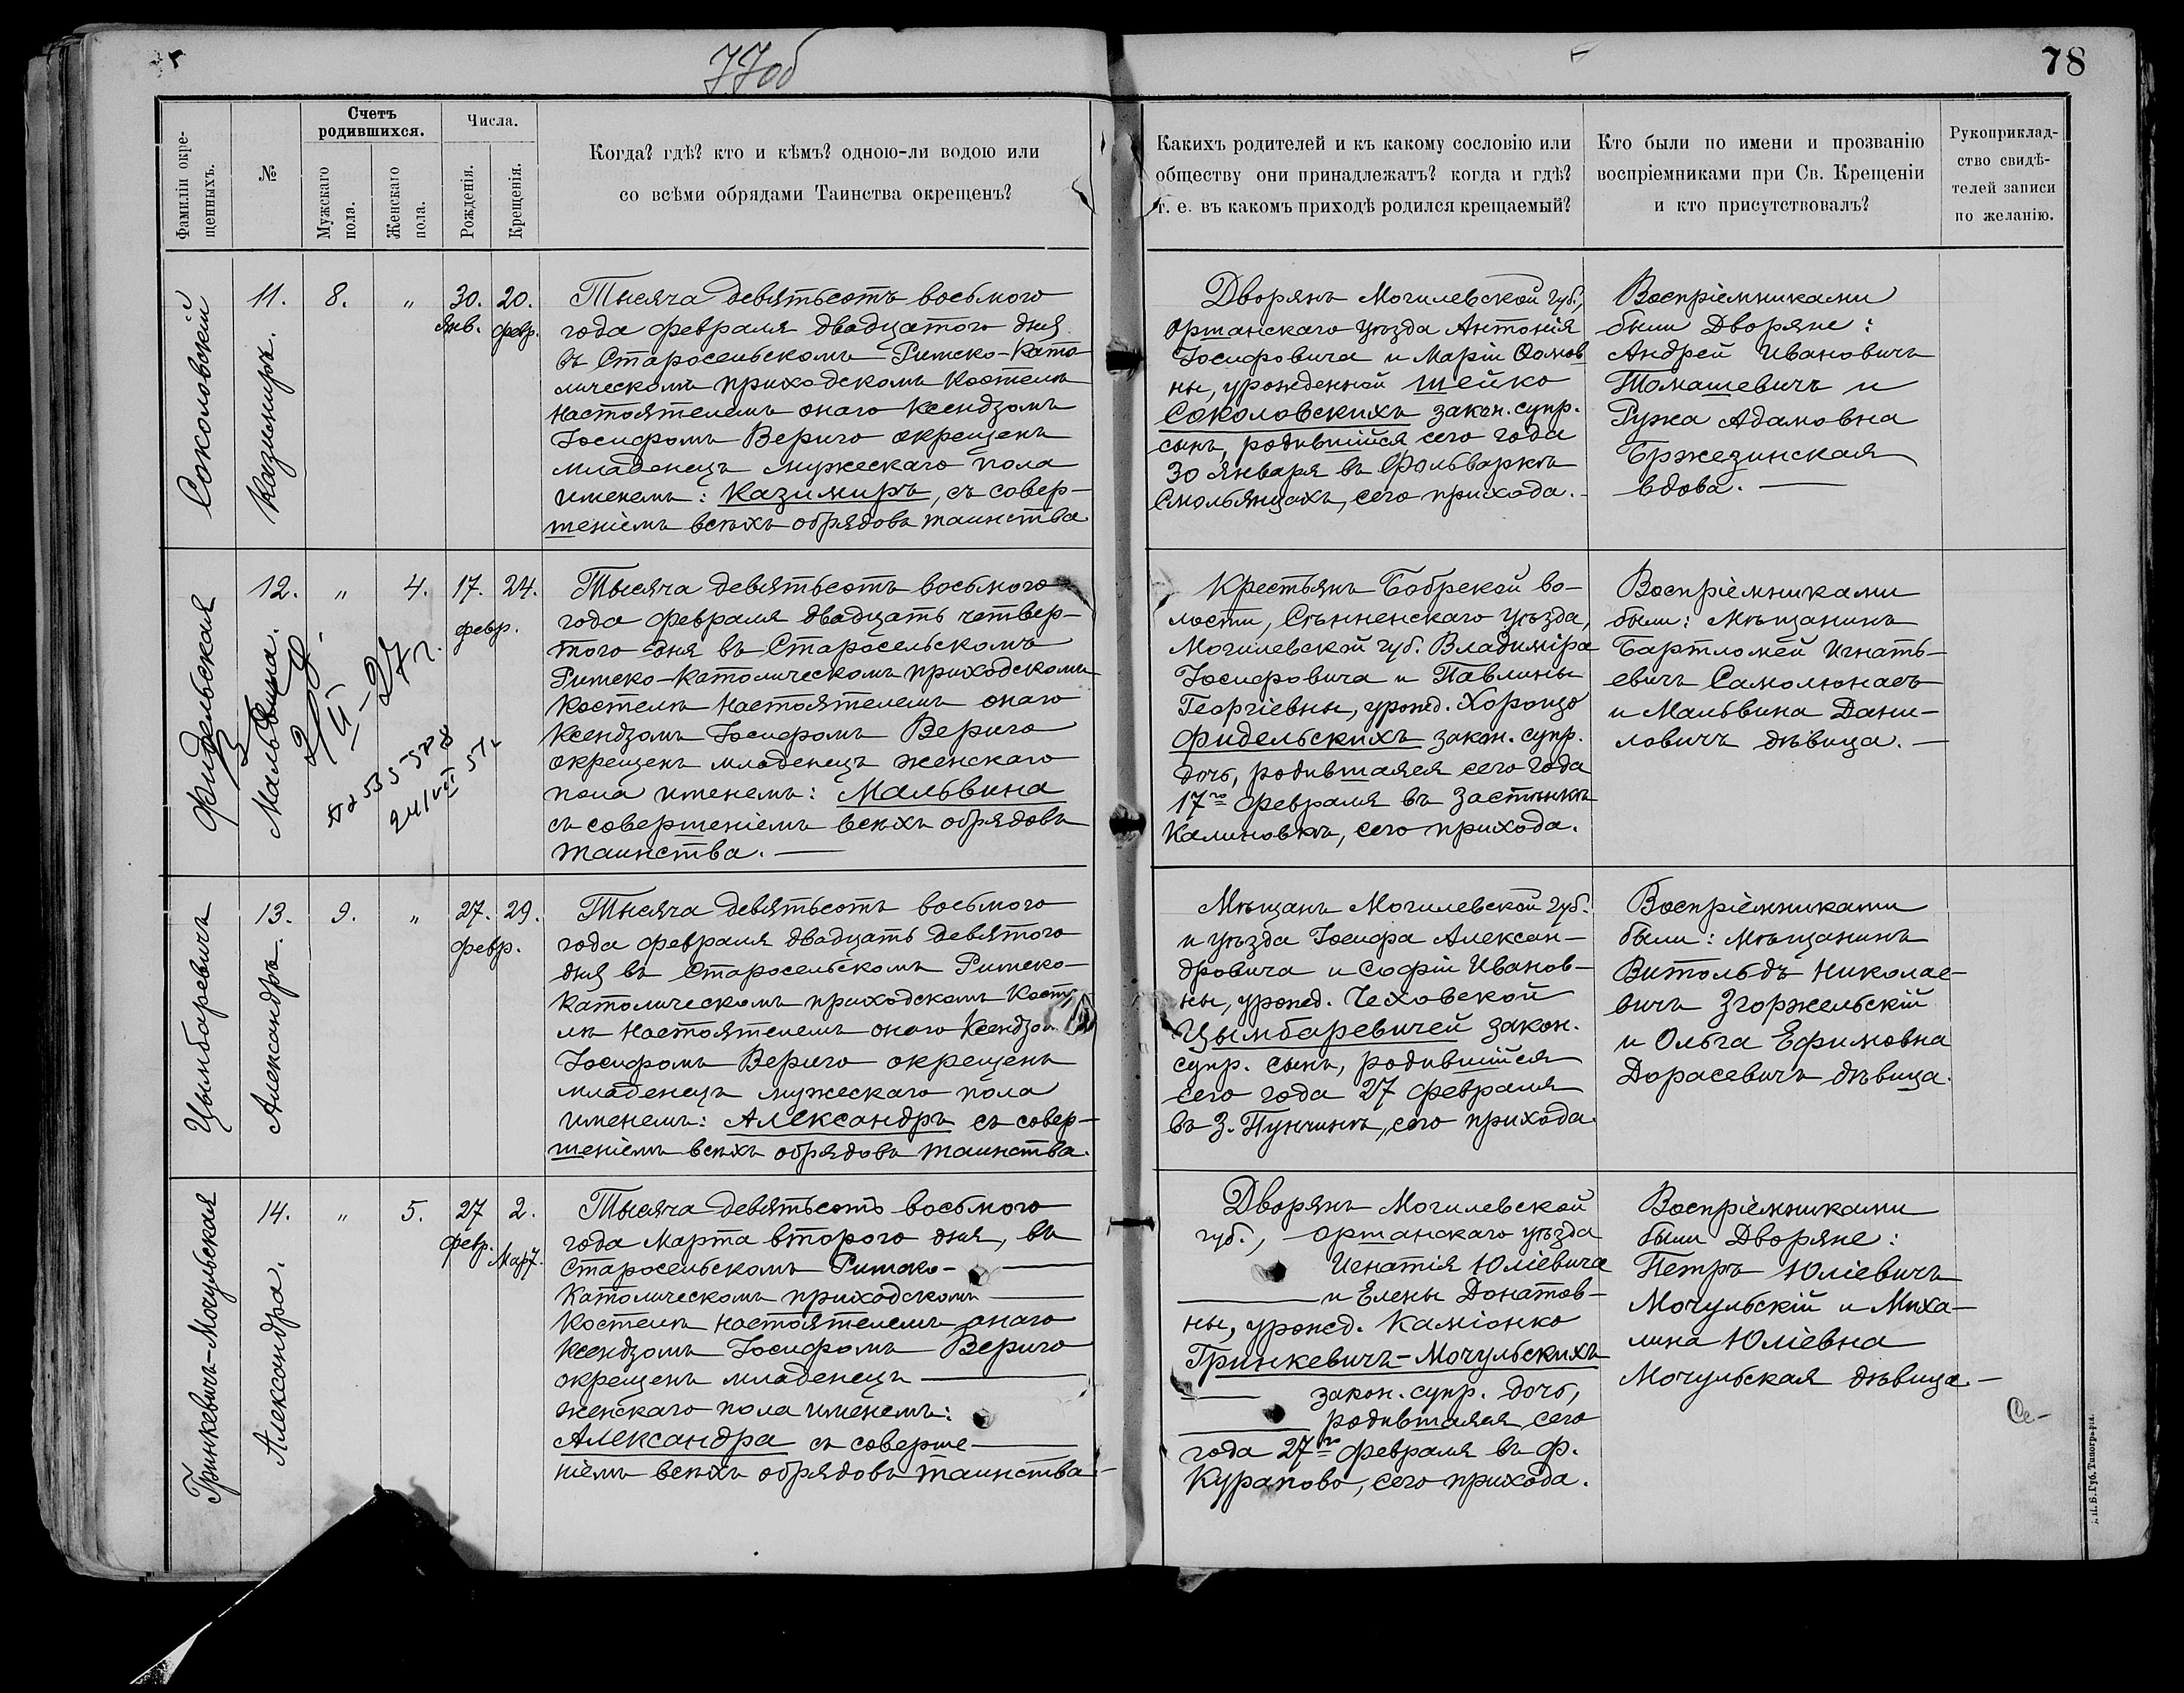 77об
78
Фамиліи окре-
щенныхъ.
№
Счетъ
родившихся.
Мужскаго
пола.
Женскаго
пола.
Числа.
Рожденія.
Крещенія.
Когда? гдѣ? кто и кѣмъ? одною-ли водою или
со всѣми обрядами Таинства окрещенъ?
Какихъ родителей и къ какому сословію или
обществу они принадлежатъ? когда и гдѣ?
т. е. въ какомъ приходѣ родился крещаемый?
Кто были по имени и прозванію
воспріемниками при Св. Крещеніи
и кто присутствовалъ?
Рукоприклад-
ство свидѣ-
телей записи
по желанію.
Соколовскій
11.
Казимиръ.
8.
"
30.
Янв.
20.
февр.
Тысяча девятьсотъ восьмого
года февраля двадцатого дня
въ Старосельскомъ Римско-Като
лическомъ приходскомъ Костелѣ
Настоятелемъ онаго Ксендзомъ
Іосифомъ Вериго окрещенъ
младенецъ мужескаго пола
именемъ: Казимиръ, съ совер-
шеніемъ всѣхъ обрядовъ таинства
Дворянъ Могилевской губ.,
Оршанскаго уѣзда Антонія
Іосифовича и Маріи Ѳомов
ны, урожденной Шейко
Соколовскихъ закон. супр.
сынъ, родившійся сего года
30 Января въ Фольваркѣ
Смольянцахъ, сего прихода.
Воспріемниками
были Дворяне:
Андрей Ивановичъ
Томашевичъ и
Ружа Адамовна
Бржезинская
вдова.
Фидельская
12.
Мальвина.
"
4.
17.
24.
февр.
27 г.
Тысяча девятьсотъ восьмого
года февраля двадцать четвер-
того дня въ Старосельскомъ
Римско-Католическомъ приходскомъ
Костелѣ Настоятелемъ онаго
Ксендзомъ Іосифомъ Вериго
окрещенъ младенецъ женскаго
пола именемъ: Мальвина
съ совершеніемъ всѣхъ обрядовъ
таинства.
Крестьянъ Бобрской во-
лости, Сѣнненскаго уѣзда,
Могилевской губ. Владиміра
Іосифовича и Павлины
Георгіевны, урожд. Хоронцо
Фидельскихъ закон. супр.
дочь, родившаяся сего года
17го февраля въ застѣнкѣ
Калиновкѣ, сего прихода.
Воспріемниками
были: Мѣщанинъ
Бартломей Игнать-
евичъ Самолюнасъ
и Мальвина Дани-
ловичъ дѣвица.
Цымбаревичъ
13.
Александръ.
9.
"
27.
29.
февр.
Тысяча девятьсотъ восьмого
года февраля двадцать девятого
дня въ Старосельскомъ Римско-
Католическомъ приходскомъ Косте
лѣ Настоятелемъ онаго Ксендзом
Іосифомъ Вериго окрещенъ
младенецъ мужескаго пола
именемъ: Александръ съ совер-
шеніемъ всѣхъ обрядовъ таинства.
Мѣщанъ Могилевской губ.
и уѣзда Іосифа Алексан-
дровича и Софіи Иванов-
ны, урожд. Чеховской
Цымбаревичей закон.
супр. сынъ, родившійся
сего года 27 февраля
въ З. Пунчинѣ, сего прихода.
Воспріемниками
были: Мѣщанинъ
Витольдъ Николае-
вичъ Згоржельскій
и Ольга Ефимовна
Дорасевичъ дѣвица.
Гринкевичъ-Мочульская
14.
Александра.
"
5.
27
февр.
2.
Март.
Тысяча девятьсотъ восьмого
года Марта второго дня, въ
Старосельскомъ Римско-
Католическомъ приходскомъ
Костелѣ Настоятелемъ онаго
Ксендзомъ Іосифомъ Вериго
окрещенъ младенецъ
женскаго пола именемъ:
Александра съ соверше-
ніемъ всѣхъ обрядовъ таинства.
Дворянъ Могилевской
губ., Оршанскаго уѣзда
Игнатія Юліевича
и Елены Донатов-
ны, урожд. Каміонко
Гринкевичъ-Мочульскихъ
закон. супр. дочь,
родившаяся сего
года 27го февраля въ ф.
Курапово, сего прихода.
Воспріемниками
были Дворяне:
Петръ Юліевичъ
Мочульскій и Миха-
лина Юліевна
Мочульская дѣвица.